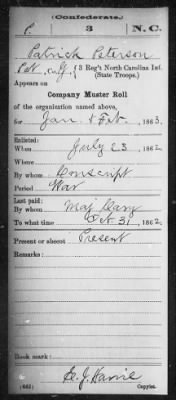 (Confederate.)
P. 3 N. C.
Patrick Peterson
Pvt, Co. G, 3 Reg't North Carolina Inf.
(State Troops.)
Appears on
Company Muster Roll
of the organization named above,
for Jan & Feb, 1863.
Enlisted:
When July 23, 1862.
Where
By whom Conscript
Period War
Last paid:
By whom Maj
To what time Oct 31, 1862.
Present or absent Present
Remarks:
Book mark:
(642) Copyist.